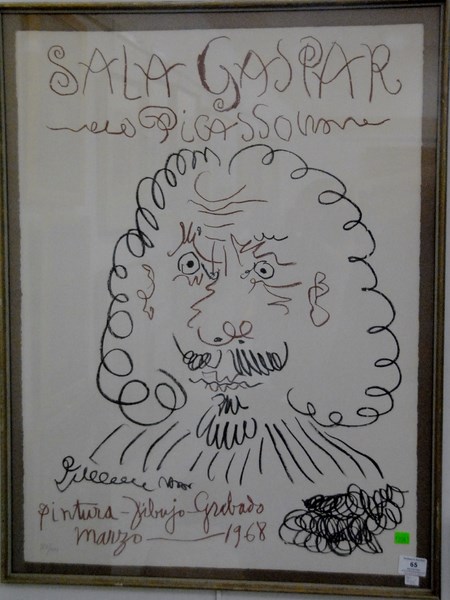 SALA GASPAR
PiCASSO
Pintura-Dibujo-Grabado
Marzo — 1968
65